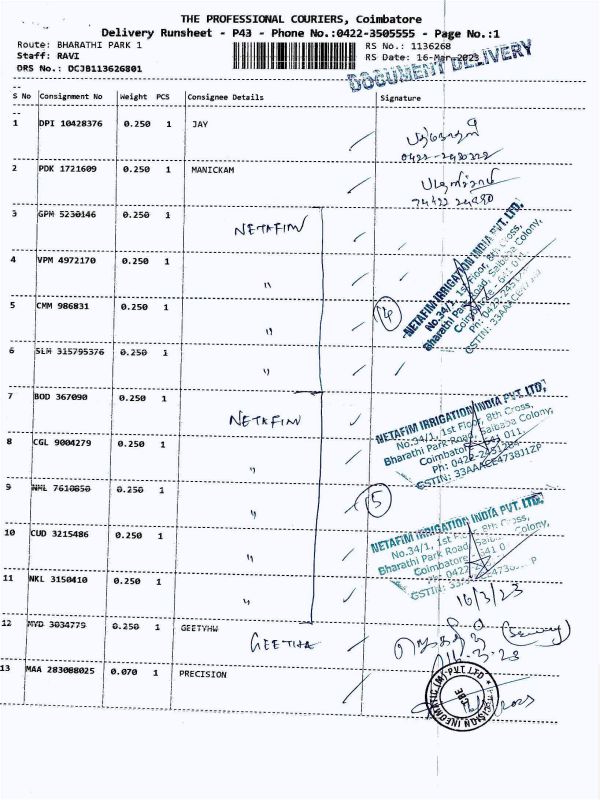 THE PROFESSIONAL COURIERS, Coimbatore
Delivery Runsheet - P43 - Phone No.:0422-3505555 - Page No.:1
Route: BHARATHI PARK 1 RS No.: 1136268
Staff: RAVI RS Date: 16-Mar-2023
DRS No.: DCJB113626801
DOCUMENT DELIVERY
S No Consignment No Weight PCS Consignee Details Signature
1 DPI 10428376 0.250 1 JAY
2 PDK 1721609 0.250 1 MANICKAM
3 GPM 5230146 0.250 1 NETAFIM
4 VPM 4972170 0.250 1 "
5 CMM 986831 0.250 1 "
6 SLM 315795376 0.250 1 "
NETAFIM IRRIGATION INDIA PVT. LTD.
No.34/1, 1st Floor, 8th Cross,
Bharathi Park Road, Saibaba Colony,
Coimbatore - 641 011.
7 BOD 367090 0.250 1 NETAFIM
8 CGL 9004279 0.250 1 "
9 NML 7610850 0.250 1 "
5
10 CUD 3215486 0.250 1 "
11 NKL 3150410 0.250 1 "
NETAFIM IRRIGATION INDIA PVT. LTD.
No.34/1, 1st Floor, 8th Cross,
Bharathi Park Road, Saibaba Colony,
Coimbatore - 641 011.
Ph: 0422-2451284
GSTIN: 33AAACE4738J1ZP
NETAFIM IRRIGATION INDIA PVT. LTD.
No.34/1, 1st 8th Cross,
Bharathi Park Road, Colony,
Coimbatore
16/3/23
12 MYD 3034779 0.250 1 GEETYHW GEETHA
13 MAA 283088025 0.070 1 PRECISION